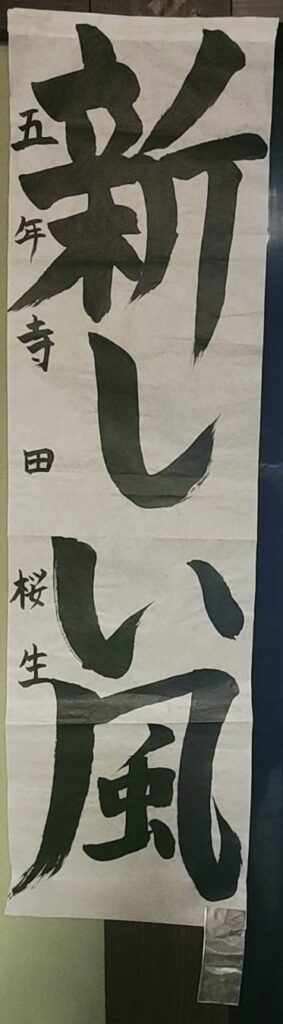 新しい風
五年寺田桜生